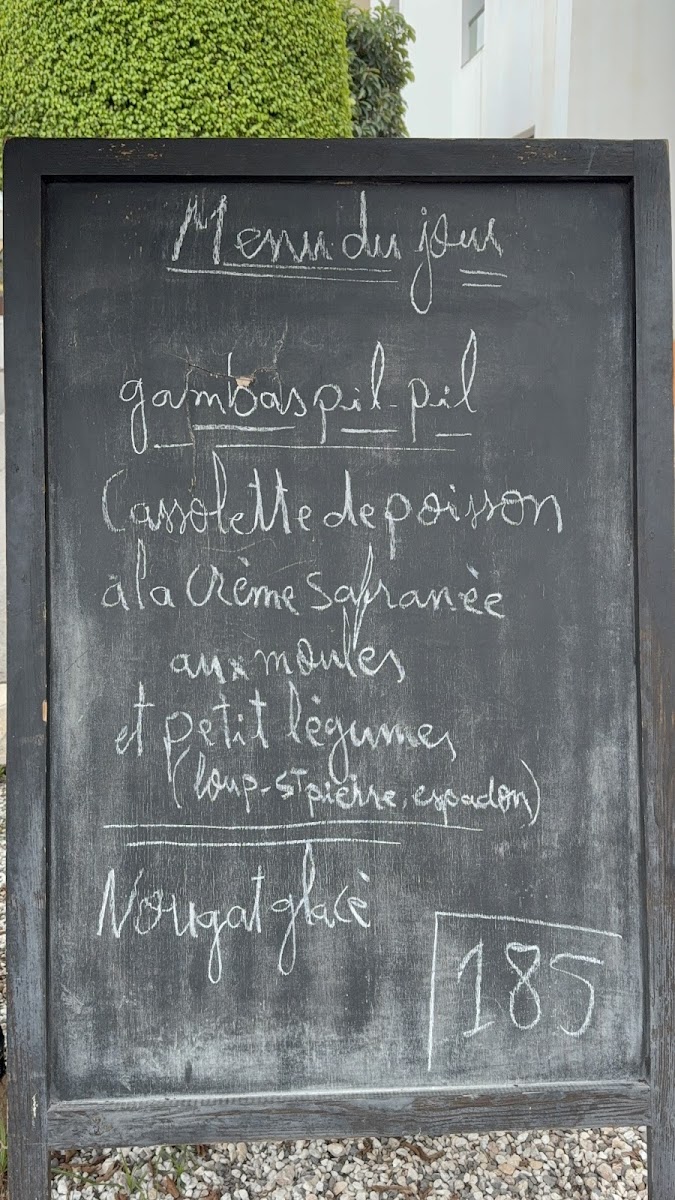 Menu du jour
gambas pil-pil
Cassolette de poisson
à la Crème Safranèe
aux moules
et petit légumes
(loup-St pierre, espadon)
Nougat glacè
185